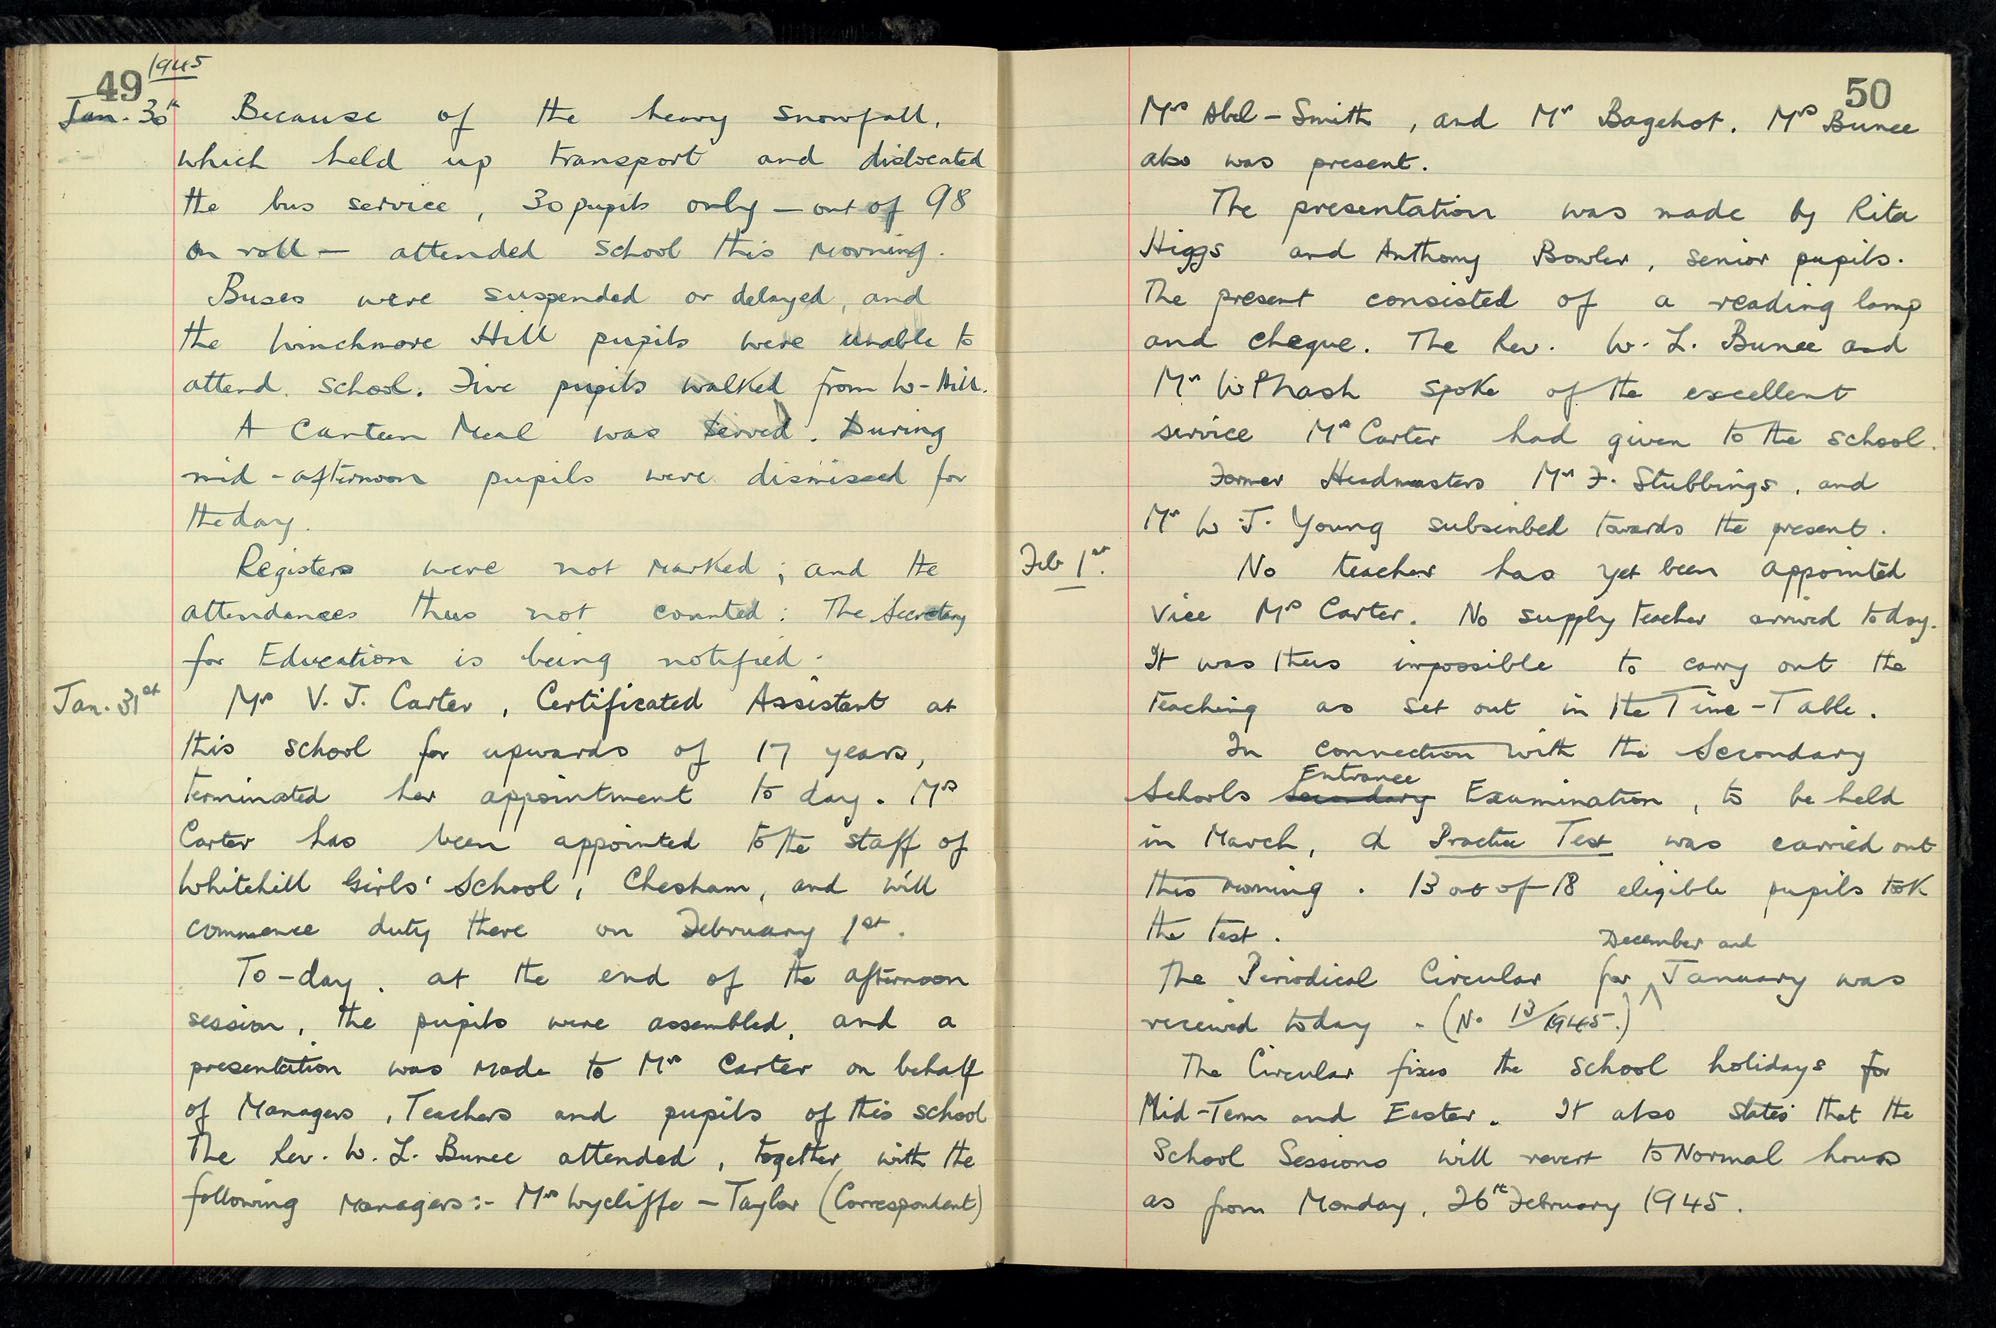 49 1945
Jan. 30th Because of the heavy snowfall,
which held up transport and dislocated
the bus service, 30 pupils only — out of 98
on roll — attended school this morning.
Buses were suspended or delayed, and
the Winchmore Hill pupils were unable to
attend school. Five pupils walked from W-Hill.
A Canteen Meal was served. During
mid-afternoon pupils were dismissed for
the day.
Registers were not marked; and the
attendances thus not counted: The Secretary
for Education is being notified.
Jan. 31st Mrs V. J. Carter, Certificated Assistant at
this school for upwards of 17 years,
terminated her appointment to day. Mrs
Carter has been appointed to the staff of
Whitehill Girls' School, Chesham, and will
commence duty there on February 1st.
To-day, at the end of the afternoon
session, the pupils were assembled, and a
presentation was made to Mrs Carter on behalf
of Managers, Teachers and pupils of this school
The Rev. W. L. Bunce attended, together with the
following managers:- Mrs Wycliffe-Taylor (Correspondent)
50
Mrs Abel-Smith, and Mr Bagehot. Mrs Bunce
also was present.
The presentation was made by Rita
Higgs and Anthony Bowler, senior pupils.
The present consisted of a reading lamp
and cheque. The Rev. W. L. Bunce and
Mr spoke of the excellent
service Mrs Carter had given to the school.
Former Headmasters Mr F. Stubbings, and
Mr W. J. Young subscribed towards the present.
Feb 1st. No teacher has yet been appointed
vice Mrs Carter. No supply teacher arrived today.
It was thus impossible to carry out the
teaching as set out in the Time-Table.
In connection with the Secondary
Entrance
Schools Secondary Examination, to be held
in March, a Practice Test was carried out
this morning. 13 out of 18 eligible pupils took
the test.
December and
The Periodical Circular for January was
received today. (No 13/1945.)
The Circular fixes the school holidays for
Mid-Term and Easter. It also states that the
School Sessions will revert to Normal hours
as from Monday, 26th February 1945.